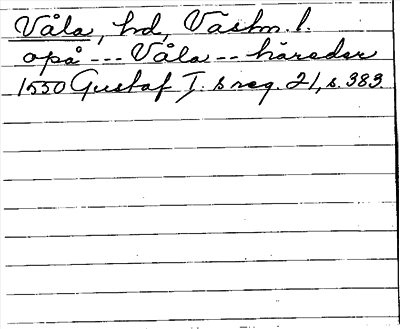 Våla, hd, Västm. l.
opå --- Våla -- häreder
1550 Gustaf I. s reg. 21, s. 383.